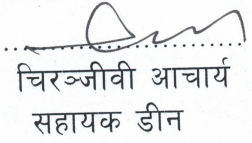 चिरञ्जीवी आचार्य
सहायक डीन